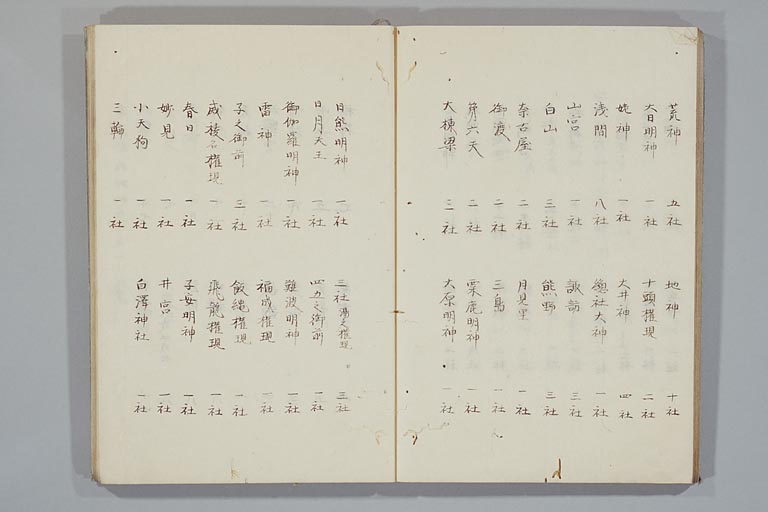 荒神 五社 地神 十社
大日明神 一社 十頭權現 二社
姥神 一社 大井神 四社
浅間 八社 惣社大神 一社
山宮 一社 諏訪 三社
白山 三社 熊野 三社
奈古屋 二社 月見里 一社
御渡 二社 三島 一社
第六天 二社 粟鹿明神 一社
大棟梁 二社 大原明神 一社
日熊明神 一社 三社湯之權現 三社
日月天王 一社 四五之御前 一社
御伽羅明神 一社 難波明神 一社
雷神 一社 福成權現 一社
子之御前 三社 飯縄權現 一社
名權現 一社 飛龍權現 一社
春日 一社 子安明神 一社
妙見 一社 井宮 一社
小天狗 一社 白澤神社 一社
三輪 一社